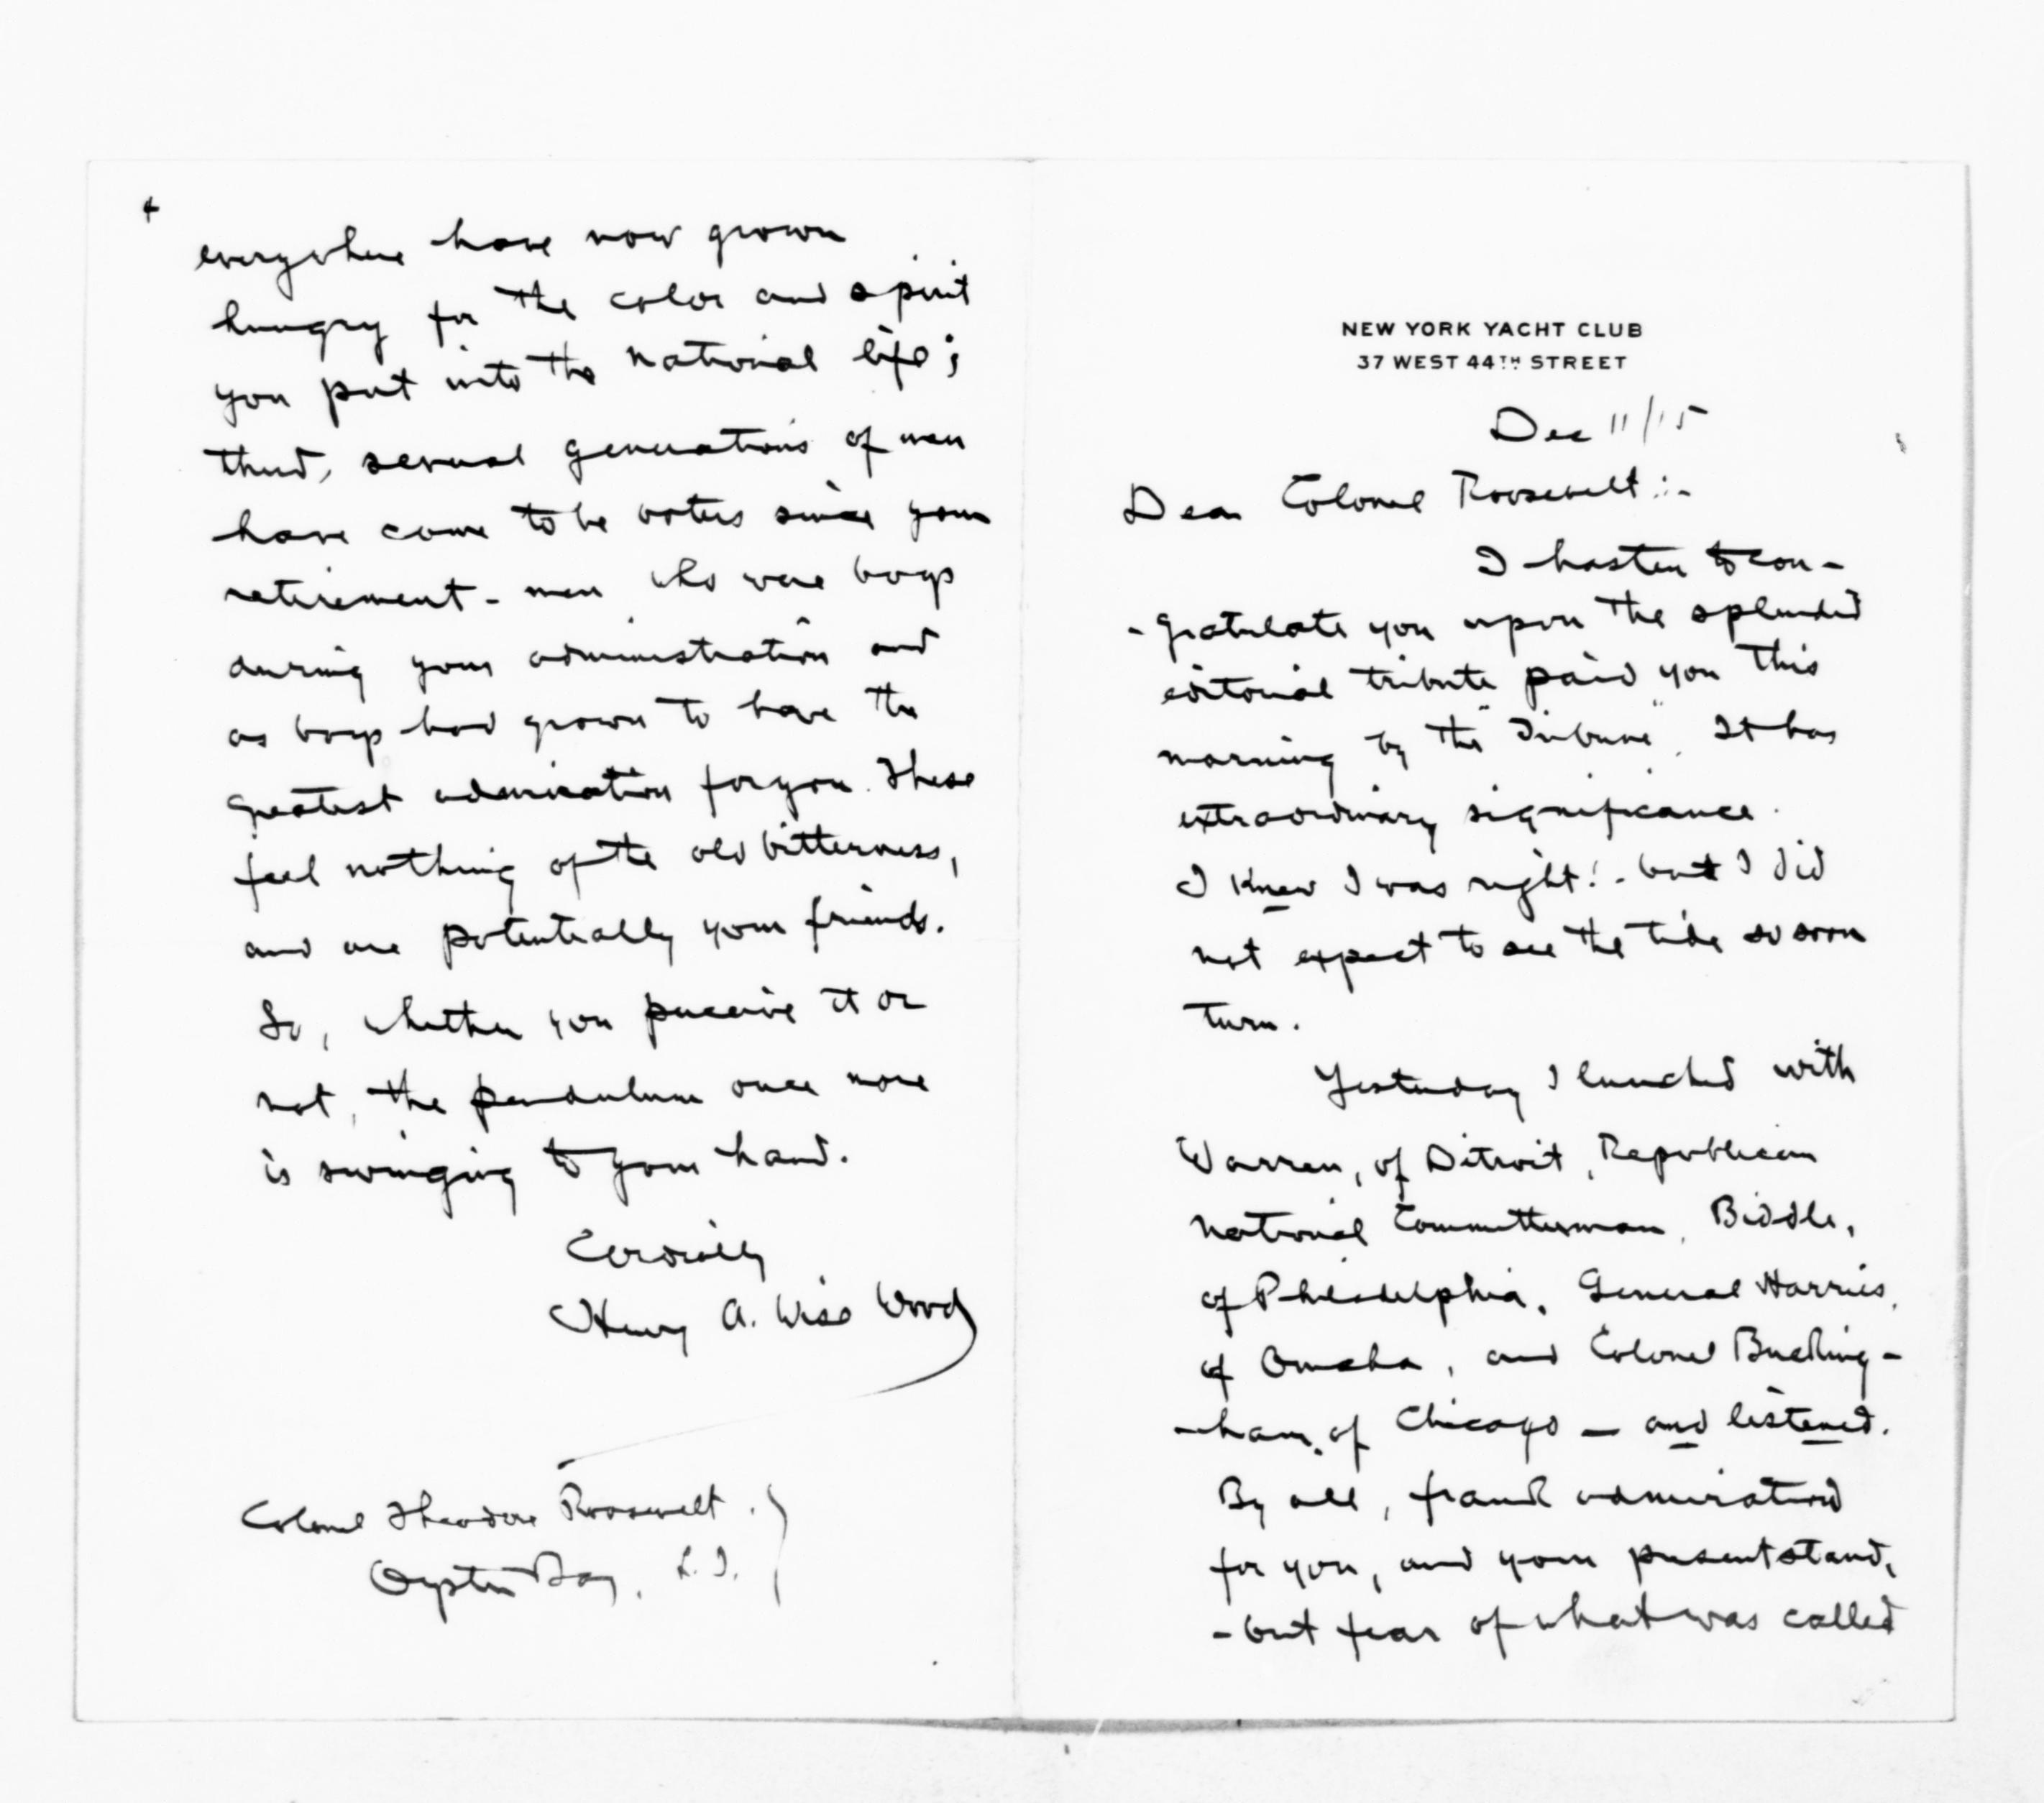 NEW YORK YACHT CLUB
37 WEST 44TH STREET
Dec 11/15
Dear Colonel Roosevelt:-
I hasten to con-
-gratulate you upon the splendid
editorial tribute paid you this
morning by the "Tribune". It has
extraordinary significance.
I knew I was right! - but I did
not expect to see the tide so soon
turn.
Yesterday I lunched with
Warren, of Detroit, Republican
National Committeeman, Biddle,
of Philadelphia, General Harries,
of Omaha, and Colonel Bucking-
-ham, of Chicago — and listened.
By all, frank admiration
for you, and your present stand,
- but fear of what was called
4
everywhere have now grown
hungry for the color and spirit
you put into the national life;
third, several generations of men
have come to be voters since your
retirement - men who were boys
during your administration and
as boys had grown to have the
greatest admiration for you. These
feel nothing of the old bitterness,
and are potentially your friends.
So, whether you perceive it or
not, the pendulum once more
is swinging to your hand.
Cordially
Henry A. Wise Wood
Colonel Theodore Roosevelt.
Oyster Bay, L.I.